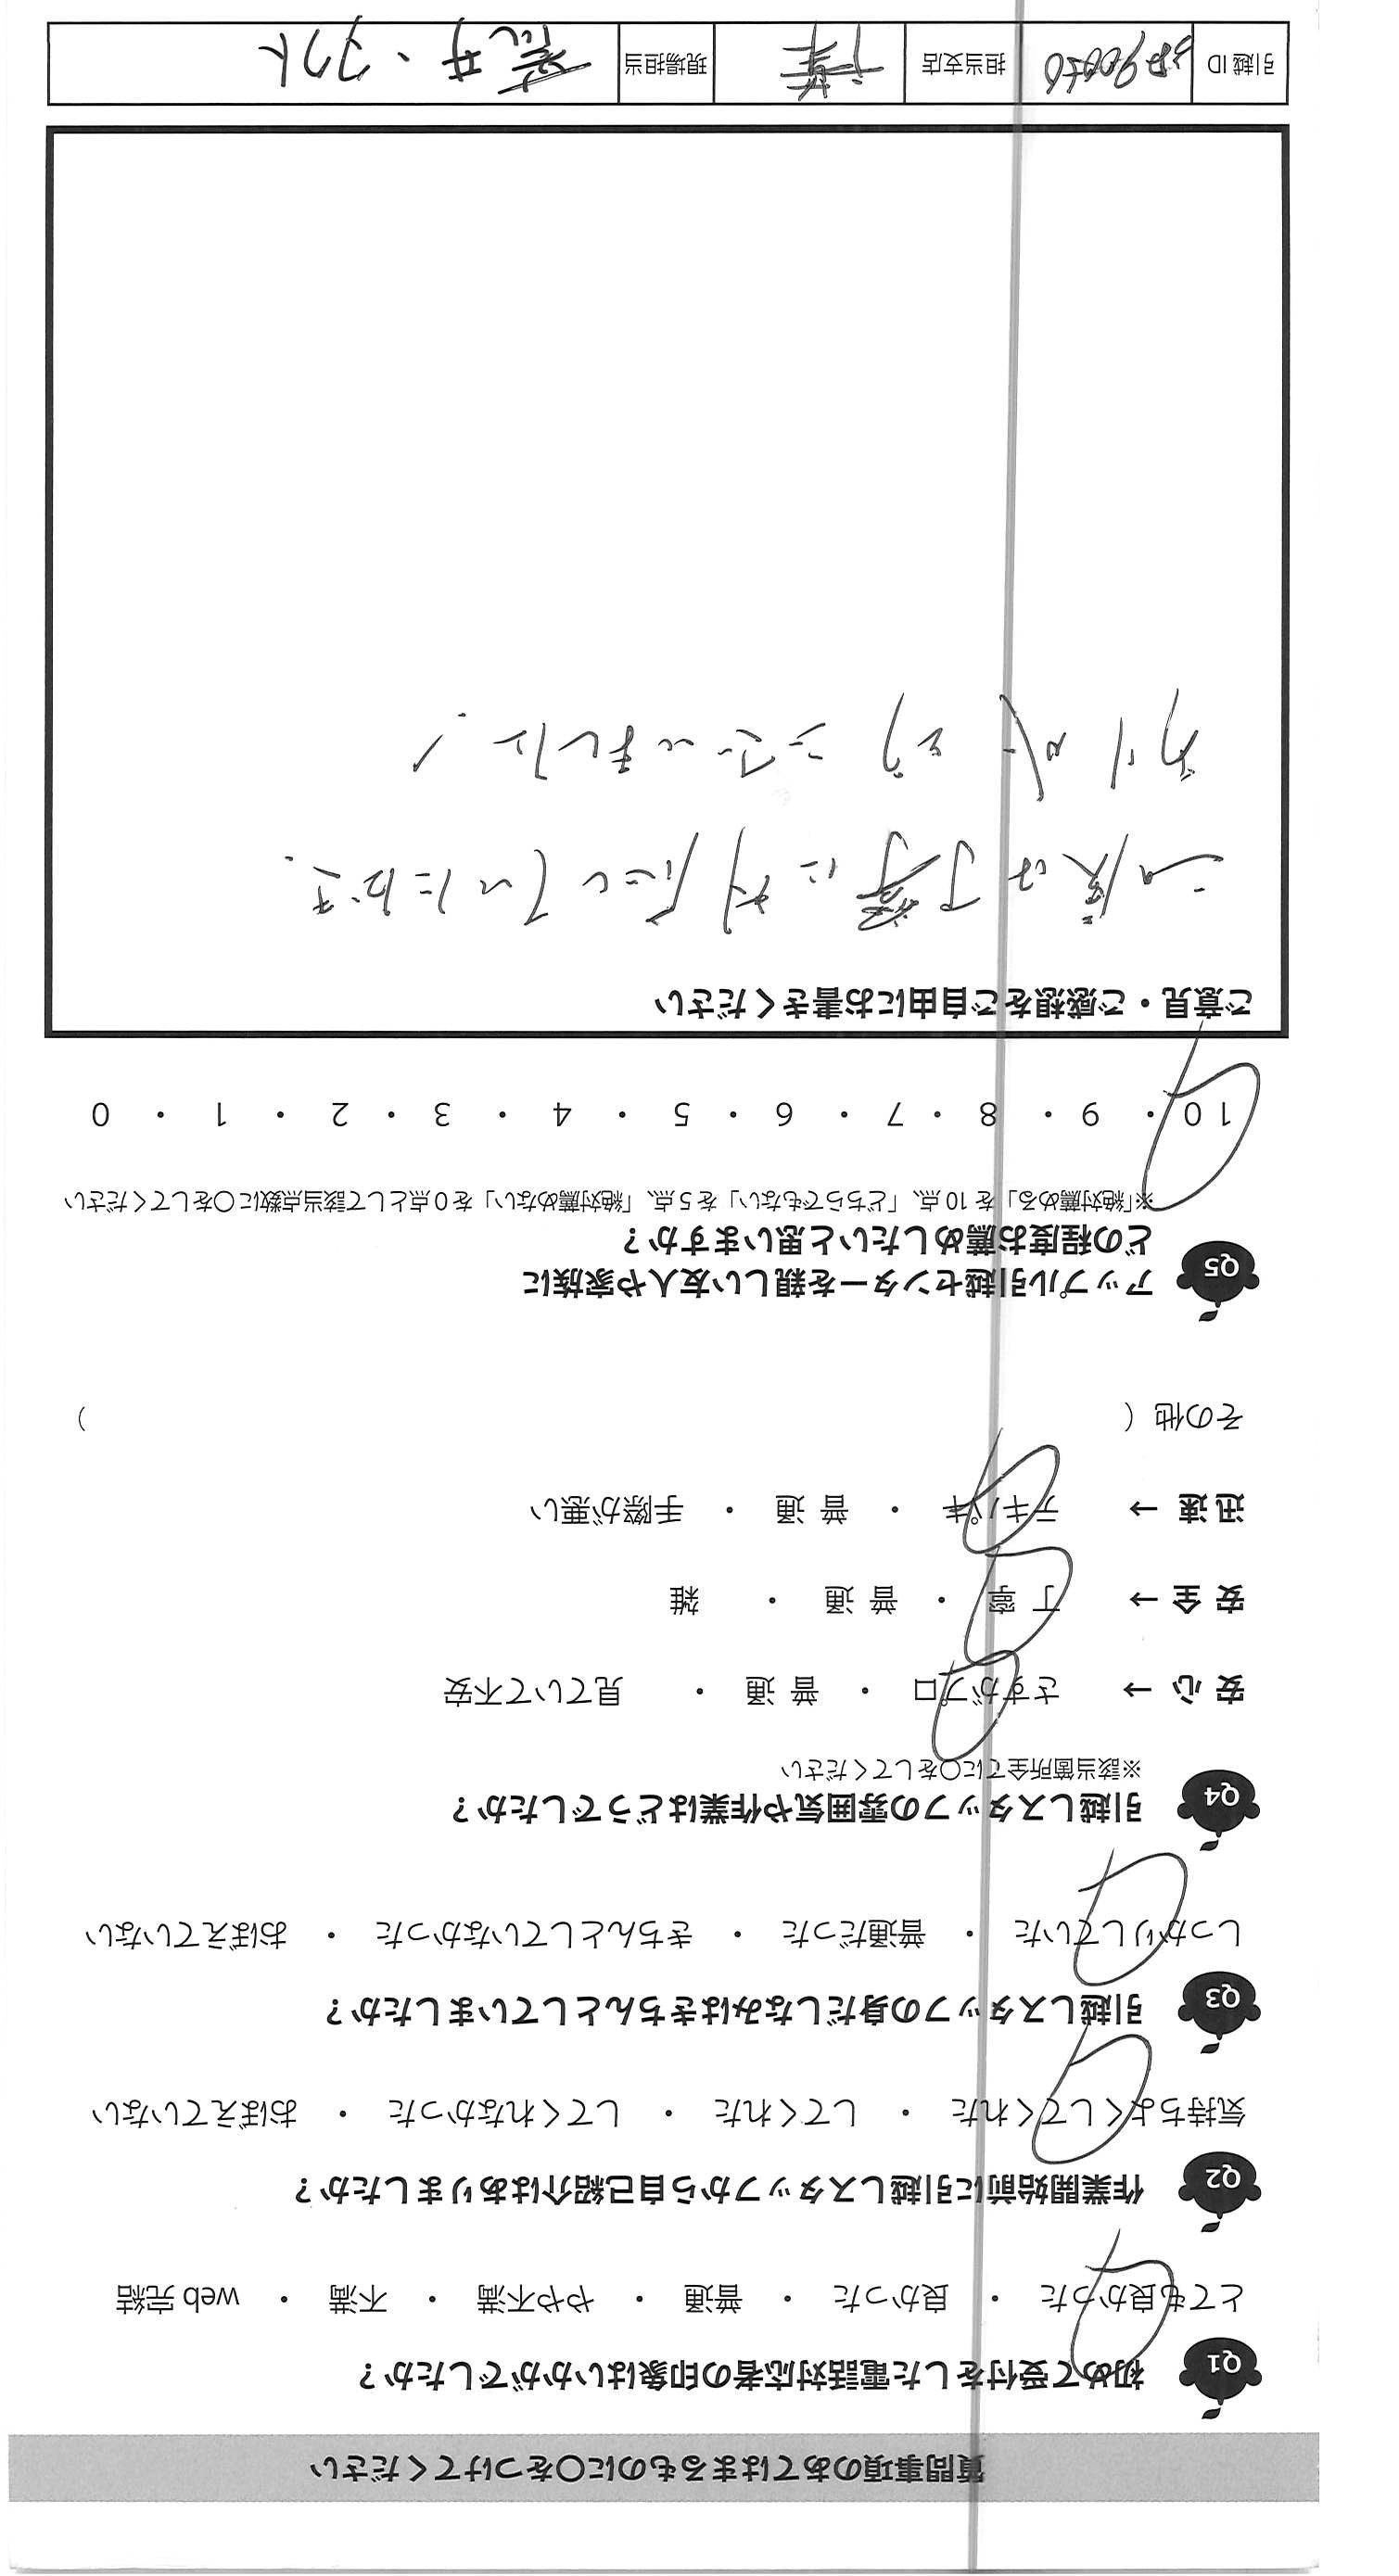 質問事項のあてはまるものに○をつけてください
Q1 初めて受付をした電話対応者の印象はいかがでしたか？
とても良かった ・ 良かった ・ 普通 ・ やや不満 ・ 不満 ・ web 完結
Q2 作業開始前に引越しスタッフから自己紹介はありましたか？
気持ちよくしてくれた ・ してくれた ・ してくれなかった ・ おぼえていない
Q3 引越しスタッフの身だしなみはきちんとしていましたか？
しっかりしていた ・ 普通だった ・ きちんとしていなかった ・ おぼえていない
Q4 引越しスタッフの雰囲気や作業はどうでしたか？
※該当箇所全てに○をしてください
安心 → さすがプロ ・ 普通 ・ 見ていて不安
安全 → 丁寧 ・ 普通 ・ 雑
迅速 → テキパキ ・ 普通 ・ 手際が悪い
その他（ ）
Q5 アップル引越センターを親しい友人や家族に
どの程度お薦めしたいと思いますか？
※「絶対薦める」を 10 点、「どちらでもない」を 5 点、「絶対薦めない」を 0 点として該当点数に○をしてください
10 ・ 9 ・ 8 ・ 7 ・ 6 ・ 5 ・ 4 ・ 3 ・ 2 ・ 1 ・ 0
ご意見・ご感想をご自由にお書きください
この度は丁寧に対応していただき、
ありがとうございました！
引越 ID 担当支店 千葉 現場担当 荒井・アクト